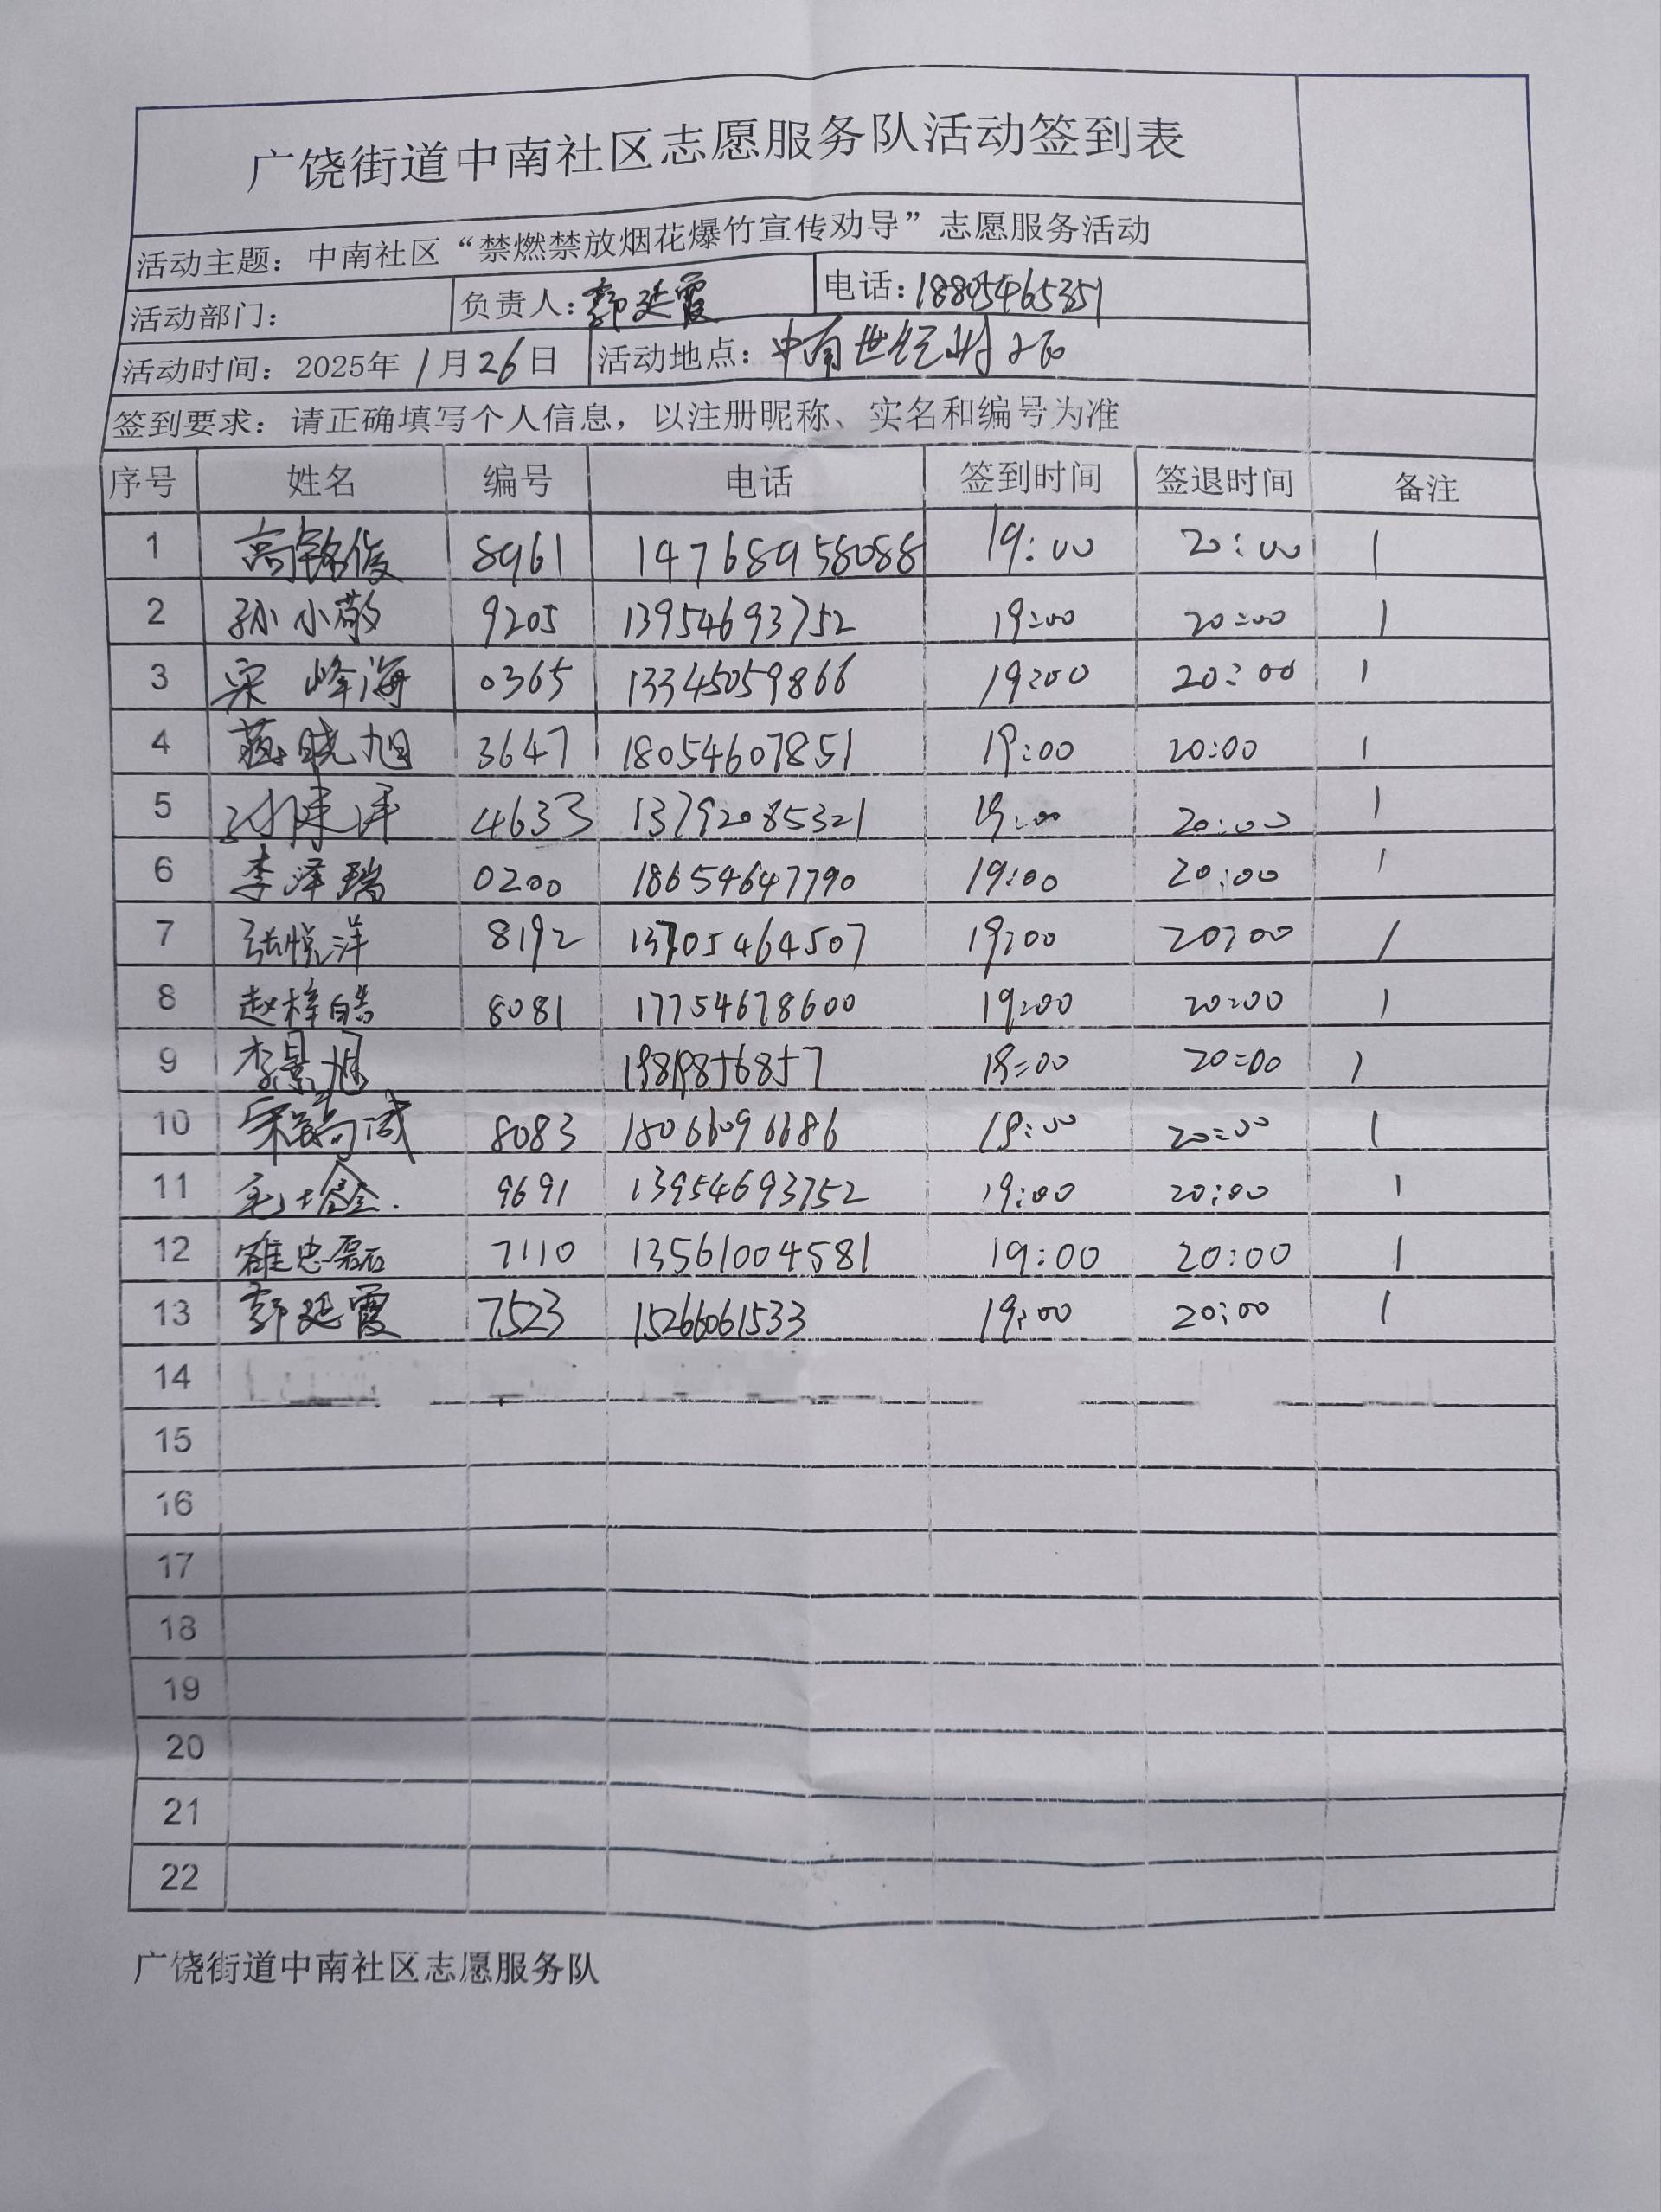 广饶街道中南社区志愿服务队活动签到表
活动主题：中南社区“禁燃禁放烟花爆竹宣传劝导”志愿服务活动
活动部门： 负责人：郭延霞 电话：18805465351
活动时间：2025年1月26日 活动地点：中南世纪城2区
签到要求：请正确填写个人信息，以注册昵称、实名和编号为准
序号 姓名 编号 电话 签到时间 签退时间 备注
1 高铭俊 8961 14768958088 19:00 20:00 1
2 孙小敬 9205 13954693752 19:00 20:00 1
3 宋峰海 0365 13345059866 19:00 20:00 1
4 晓旭 3647 18054607851 19:00 20:00 1
5 4633 13792085321 19:00 20:00 1
6 李泽瑞 0200 18654647790 19:00 20:00 1
7 张悦洋 8192 13705464507 19:00 20:00 1
8 赵梓皓 8081 17754678600 19:00 20:00 1
9 李景旭 19:00 20:00 1
10 宋 8083 15066096686 19:00 20:00 1
11 毛 鑫 9691 13954693752 19:00 20:00 1
12 崔忠磊 7110 13561004581 19:00 20:00 1
13 郭延霞 7523 15266061533 19:00 20:00 1
14
15
16
17
18
19
20
21
22
广饶街道中南社区志愿服务队